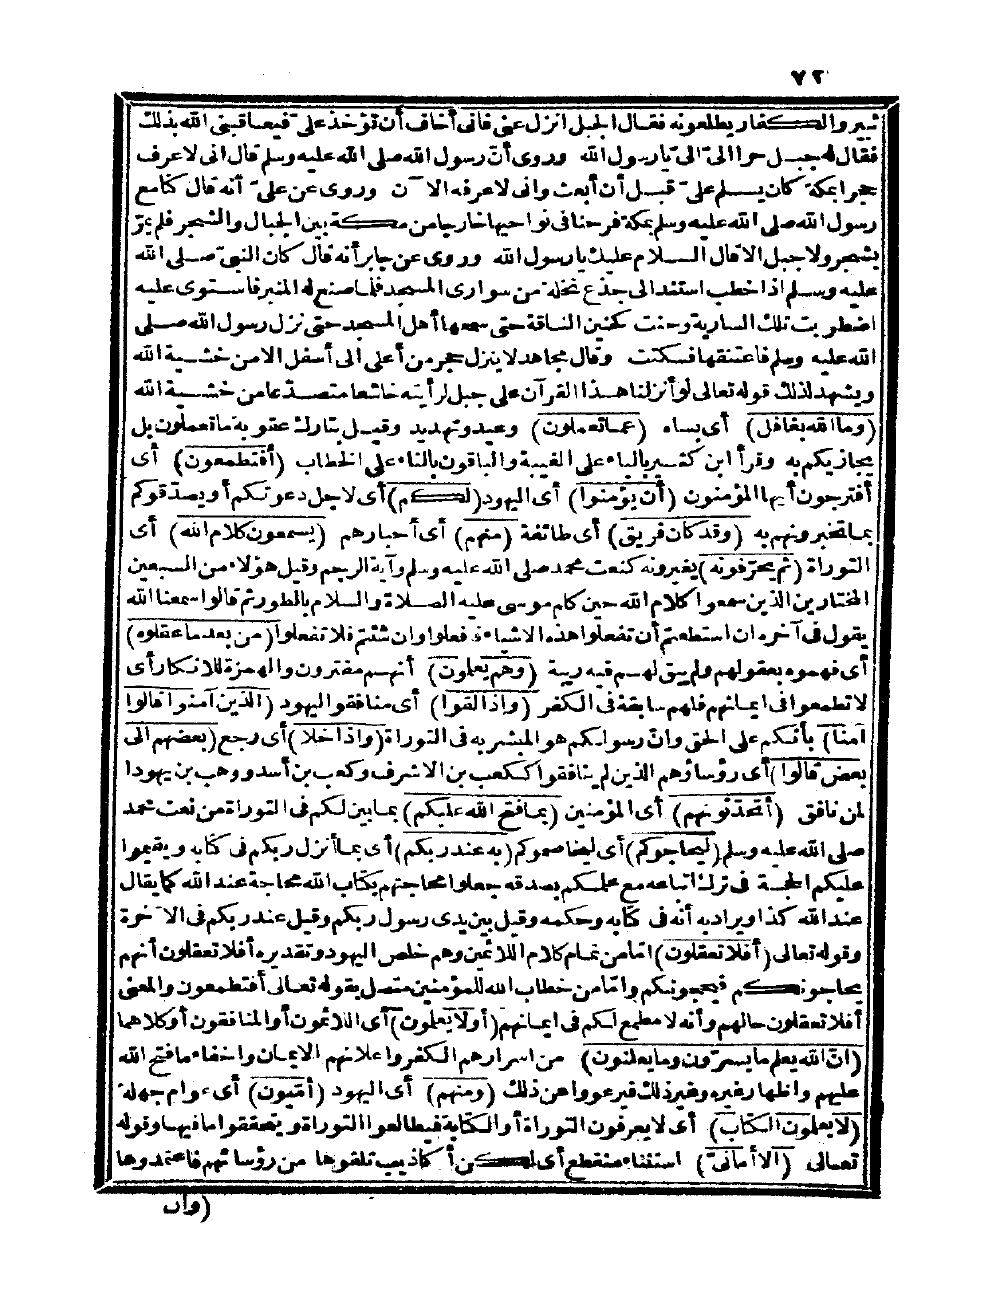 ٧٢
ثبير والكفار يطلعونه فقال الجبل انزل عنى فانى أخاف أن تؤخذ علىّ فيعاقبنى الله بذلك
فقال له جبل حرا الىّ الىّ يارسول الله وروى أنّ رسول الله صلى الله عليه وسلم قال انى لاعرف
حجرا بمكة كان يسلم علىّ قبل أن أبعث وانى لاعرفه الآن وروى عن علىّ أنه قال كنا مع
رسول الله صلى الله عليه وسلم بمكة فرحنا فى نواحيها خارجا من مكة بين الجبال والشجر فلم يمرّ
بشجر ولا جبل الا قال السلام عليك يارسول الله وروى عن جابر أنه قال كان النبىّ صلى الله
عليه وسلم اذا خطب استند الى جذع نخلة من سوارى المسجد فلما صنع له المنبر فاستوى عليه
اضطربت تلك السارية وحنت كحنين الناقة حتى سمعها أهل المسجد حتى نزل رسول الله صلى
الله عليه وسلم فاعتنقها فسكنت وقال مجاهد لا ينزل حجر من أعلى الى أسفل الا من خشية الله
ويشهد لذلك قوله تعالى لو أنزلنا هذا القرآن على جبل لرأيته خاشعا متصدّعا من خشية الله
(وما الله بغافل) أى بساه (عما تعملون) وعيد وتهديد وقيل بتارك عقوبة ما تعملون بل
يجازيكم به وقرأ ابن كثير بالياء على الغيبة والباقون بالتاء على الخطاب (أفتطمعون) أى
أفترجون أيها المؤمنون (أن يؤمنوا) أى اليهود (لكم) أى لاجل دعوتكم أو يصدّقوكم
بما تخبرونهم به (وقد كان فريق) أى طائفة (منهم) أى أحبارهم (يسمعون كلام الله) أى
التوراة (ثم يحرّفونه) يغيرونه كنعت محمد صلى الله عليه وسلم وآية الرجم وقيل هؤلاء من السبعين
المختارين الذين سمعوا كلام الله حين كلم موسى عليه الصلاة والسلام بالطور ثم قالوا سمعنا الله
يقول فى آخره ان استطعتم أن تفعلوا هذه الاشياء فافعلوا وان شئتم فلا تفعلوا (من بعد ما عقلوه)
أى فهموه بعقولهم ولم يبق لهم فيه ريبة (وهم يعلمون) أنهم مفترون والهمزة للانكار أى
لا تطمعوا فى ايمانهم فلهم سابقة فى الكفر (واذا لقوا) أى منافقوا اليهود (الذين آمنوا قالوا
آمنا) بأنكم على الحق وانّ رسولكم هو المبشر به فى التوراة (واذا خلا) أى رجع (بعضهم الى
بعض قالوا) أى رؤساؤهم الذين لم ينافقوا ككعب بن الاشرف وكعب بن أسد ووهب بن يهودا
لمن نافق (أتحدّثونهم) أى المؤمنين (بما فتح الله عليكم) بما بين لكم فى التوراة من نعت محمد
صلى الله عليه وسلم (ليحاجوكم) أى ليخاصموكم (به عند ربكم) أى بما أنزل ربكم فى كتابه ويقيموا
عليكم الحجة فى ترك اتباعه مع علمكم بصدقه جعلوا محاجتهم بكتاب الله محاجة عند الله كما يقال
عند الله كذا ويراد به أنه فى كتابه وحكمه وقيل بين يدى رسول ربكم وقيل عند ربكم فى الآخرة
وقوله تعالى (أفلا تعقلون) امّا من تمام كلام اللائمين وهم خلص اليهود وتقديره أفلا تعقلون أنهم
يحاجونكم فيحجونكم وامّا من خطاب الله للمؤمنين متصل بقوله تعالى أفتطمعون والمعنى
أفلا تعقلون حالهم وأنه لا مطمع لكم فى ايمانهم (أولا يعلمون) أى اللائمون أو المنافقون أو كلاهما
(انّ الله يعلم ما يسرّون وما يعلنون) من اسرارهم الكفر واعلانهم الايمان واخفاء ما فتح الله
عليهم واظهار غيره وغير ذلك فيرعووا عن ذلك (ومنهم) أى اليهود (أمّيون) أى عوام جهلة
(لا يعلمون الكتاب) أى لا يعرفون التوراة أو الكتابة فيطالعوا التوراة ويتحققوا ما فيها وقوله
تعالى (الا أمانىّ) استثناء منقطع أى لكن أكاذيب تلقوها من رؤسائهم فاعتمدوها
(وان